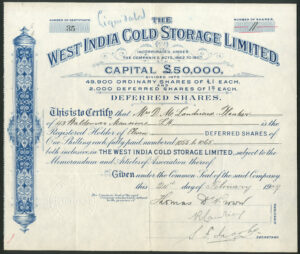 Cancelled
NUMBER OF CERTIFICATE
35
THE
NUMBER OF SHARES
11
WEST INDIA COLD STORAGE LIMITED.
INCORPORATED UNDER
THE COMPANIES ACTS, 1862 TO 1907.
CAPITAL £50,000,
DIVIDED INTO
49,900 ORDINARY SHARES OF £1 EACH,
AND
2,000 DEFERRED SHARES OF 1s EACH.
DEFERRED SHARES.
This is to Certify that
of Mansions
is the
Registered Holder of Eleven DEFERRED SHARES OF
One Shilling each, fully paid, numbered 1055 to 1065
both inclusive, in THE WEST INDIA COLD STORAGE LIMITED, subject to the
Memorandum and Articles of Association thereof.
Given under the Common Seal of the said Company
this day of February 1909
Thomas
SECRETARY.